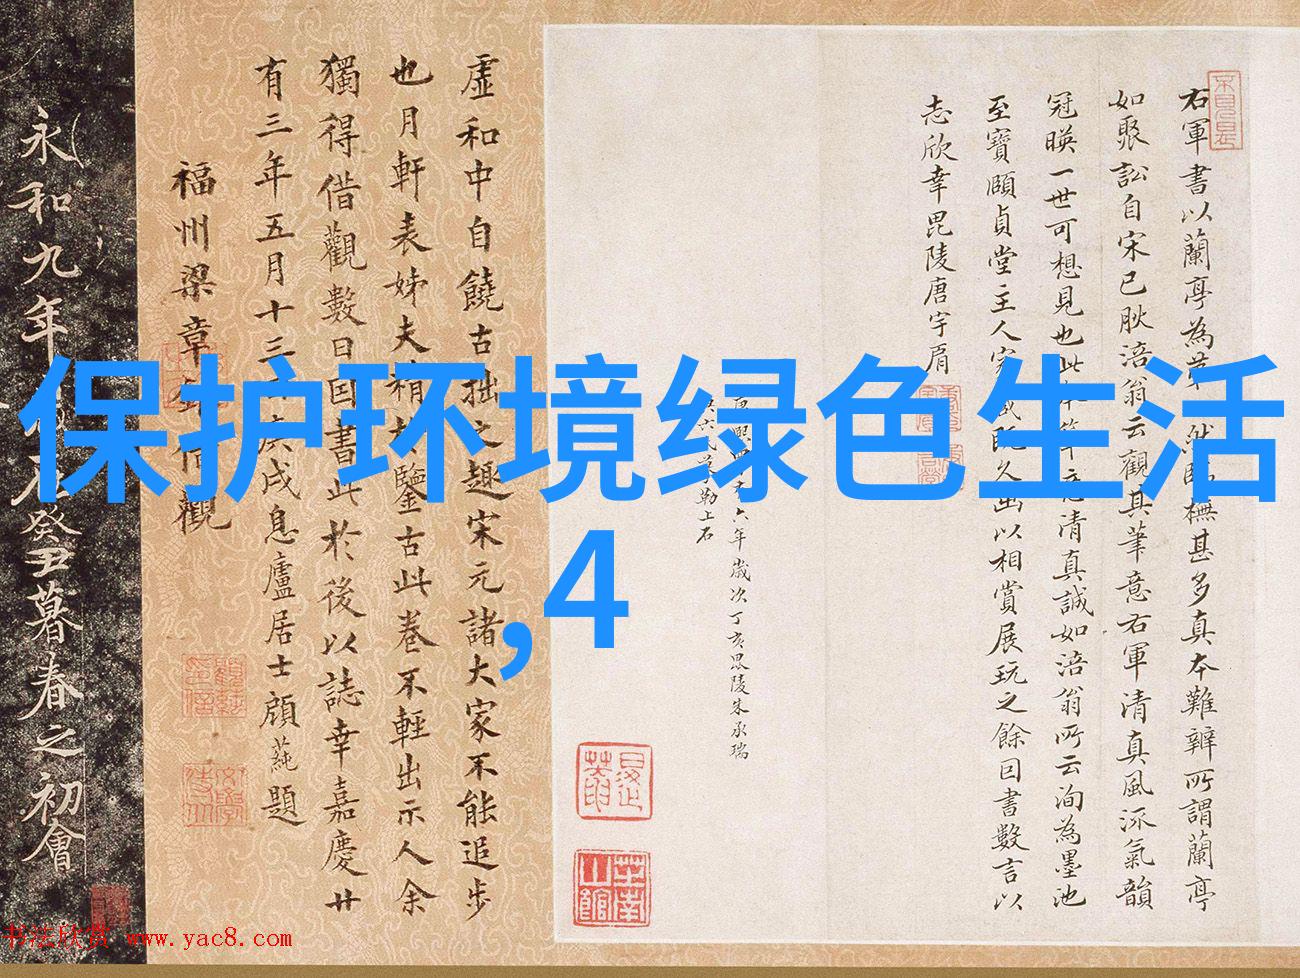 保护环境绿色生活
,4
右軍書以蘭亭為
如聚訟自宋已
涪翁云觀其筆意右軍清真風流氣韻
冠暎一世可想見也此
清真誠如涪翁所云洵為墨池
至寶頤貞堂主人
以相賞展玩之餘因書數言以
志欣幸毘陵唐宇肩
六年歲次丁亥毘陵朱承瑞
勒上石
虛和中自饒古拙之趣宋元諸大家不能追步
也月軒表姊夫
鑒古此卷不輕出示人余
獨得借觀數日因書此於後以誌幸嘉慶廿
有三年五月十三
庚戌息廬居士顧蒓題
福州梁章
觀
永和九年
癸丑暮春之初會
书法欣赏 www.yac8.com